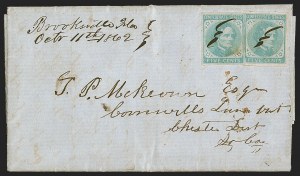 Brookville
Octr 11th 1862
FIVE CENTS FIVE CENTS
T. P. McKeown Esqr
Cornwells
Chester Dist
So Ca